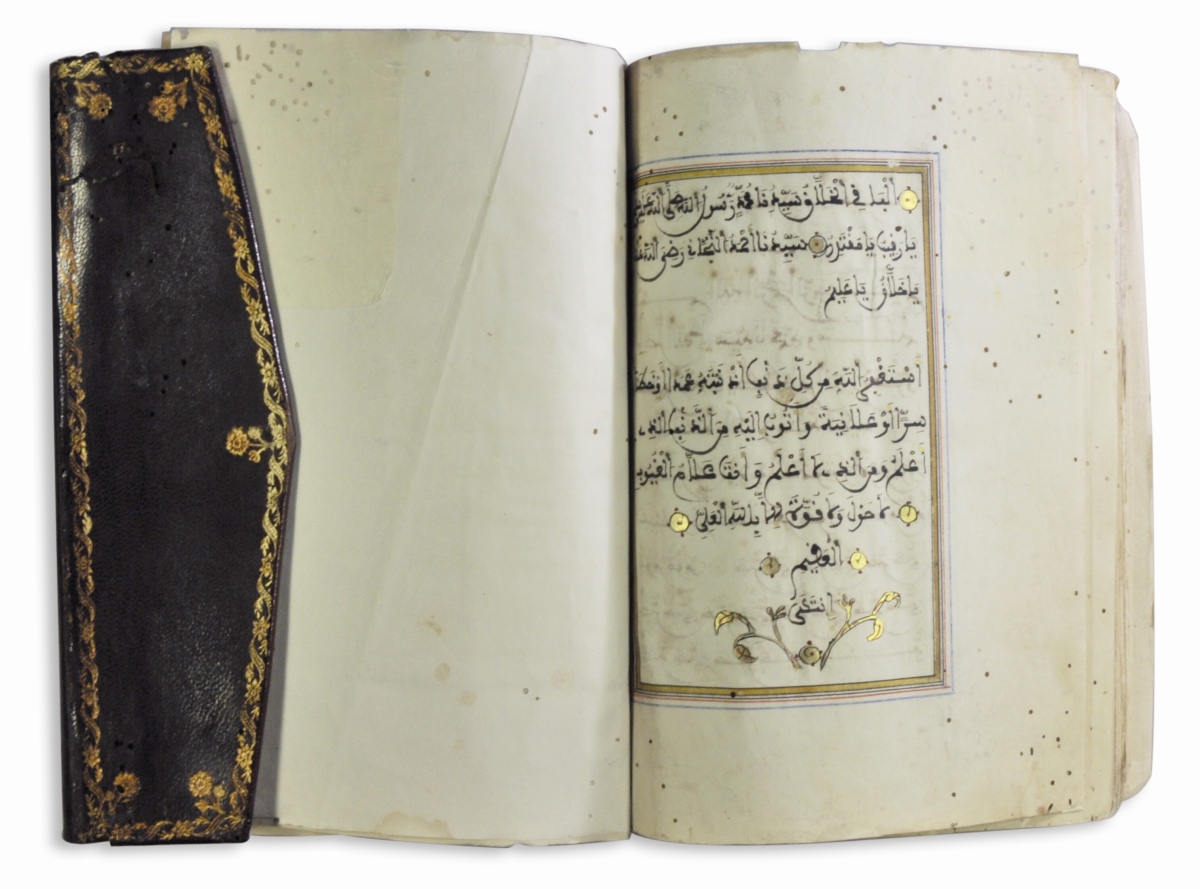 الْفَاتِحِ الْخَلَّاقُ سَيِّدُنَا مُحَمَّدٌ رَّسُولُ اللَّهِ صَلَّى اللَّهُ عَلَيْهِ
يَا رَقِيبُ يَا مُقْتَدِرُ سَيِّدُنَا أَحْمَدُ التِّجَانِي رَضِيَ اللَّهُ
يَا خَلَّاقُ يَا عَلِيمُ
أَسْتَغْفِرُ اللَّهَ مِن كُلِّ ذَنْبٍ أَذْنَبْتُهُ عَمْدًا أَوْ خَطَأً
سِرًّا أَوْ عَلَانِيَةً وَأَتُوبُ إِلَيْهِ مِنَ الذَّنْبِ الَّذِي
أَعْلَمُ وَمِنَ الَّذِي لَا أَعْلَمُ وَأَنتَ عَلَّامُ الْغُيُوبِ
لَا حَوْلَ وَلَا قُوَّةَ إِلَّا بِاللَّهِ الْعَلِيِّ
الْعَظِيمِ
انتهى